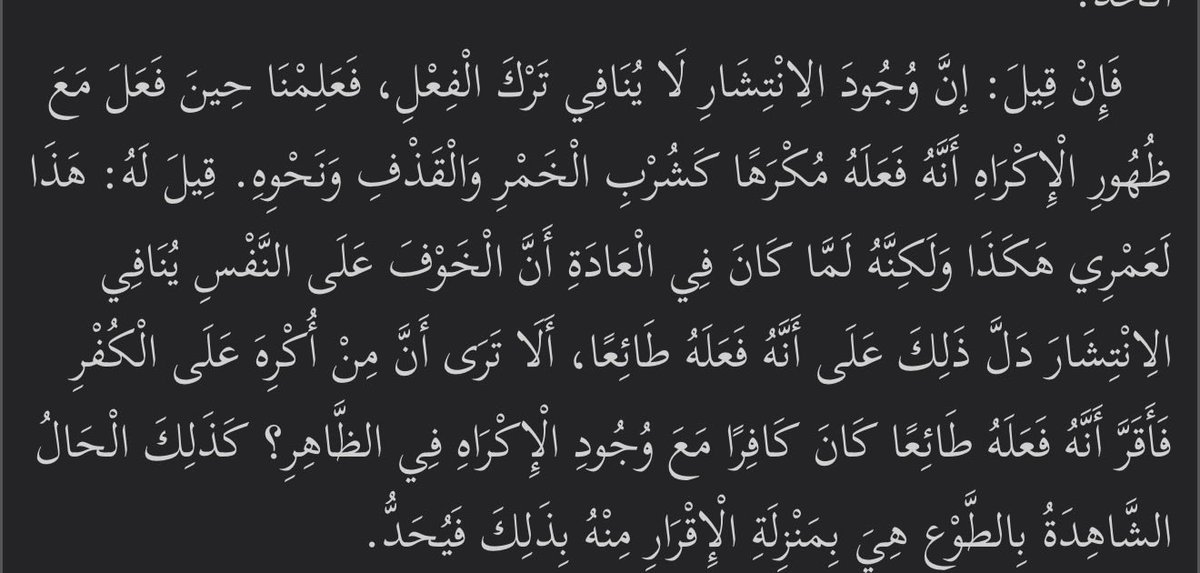 فَإِنْ قِيلَ: إنَّ وُجُودَ الِانْتِشَارِ لَا يُنَافِي تَرْكَ الْفِعْلِ، فَعَلِمْنَا حِينَ فَعَلَ مَعَ
ظُهُورِ الْإِكْرَاهِ أَنَّهُ فَعَلَهُ مُكْرَهًا كَشُرْبِ الْخَمْرِ وَالْقَذْفِ وَنَحْوِهِ. قِيلَ لَهُ: هَذَا
لَعَمْرِي هَكَذَا وَلَكِنَّهُ لَمَّا كَانَ فِي الْعَادَةِ أَنَّ الْخَوْفَ عَلَى النَّفْسِ يُنَافِي
الِانْتِشَارَ دَلَّ ذَلِكَ عَلَى أَنَّهُ فَعَلَهُ طَائِعًا، أَلَا تَرَى أَنَّ مِنْ أُكْرِهَ عَلَى الْكُفْرِ
فَأَقَرَّ أَنَّهُ فَعَلَهُ طَائِعًا كَانَ كَافِرًا مَعَ وُجُودِ الْإِكْرَاهِ فِي الظَّاهِرِ؟ كَذَلِكَ الْحَالُ
الشَّاهِدَةُ بِالطَّوْعِ هِيَ بِمَنْزِلَةِ الْإِقْرَارِ مِنْهُ بِذَلِكَ فَيُحَدُّ.